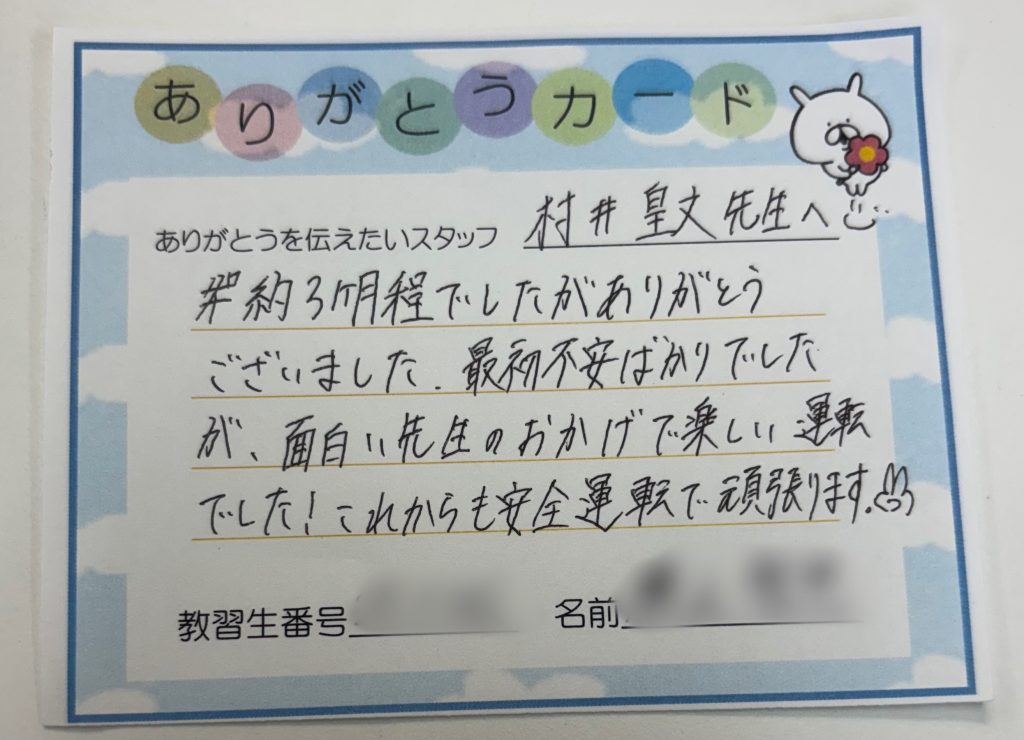 ありがとうカード
ありがとうを伝えたいスタッフ 村井 皇文 先生へ
約3ケ月程でしたがありがとう
ございました。最初不安ばかりでした
が、面白い先生のおかげで楽しい運転
でした!これからも安全運転で頑張ります。
教習生番号 名前